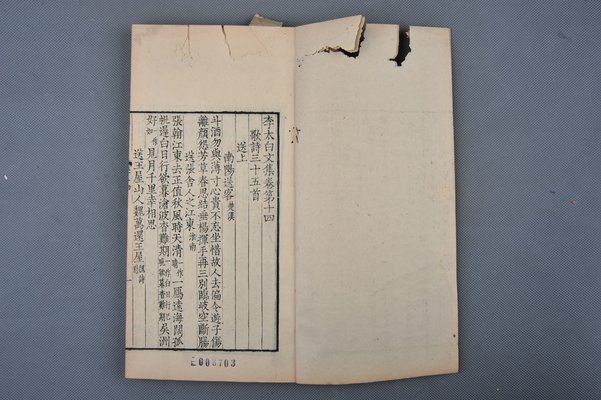 李太白文集卷第十四
歌詩三十五首
送上
南陽送客
斗酒勿與薄寸心貴不忘坐惜故人去偏令遊子傷
離顏怨芳草春思結垂楊揮手再三別臨岐空斷腸
送張舍人之江東
張翰江東去正值秋風時天清一鴈遠海闊孤
帆遲白日行欲暮滄波杳難期吳洲
好見月千里幸相思
送王屋山人魏萬還王屋
一
003703